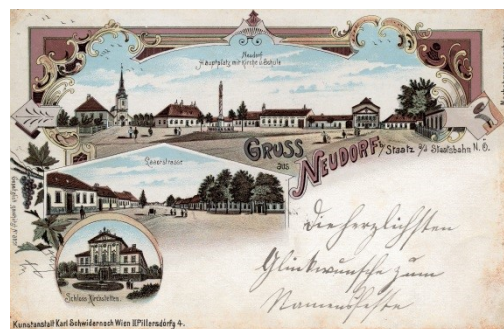 Neudorf
Hauptplatz mit Kirche u. Schule
GRUSS
aus
NEUDORF b/ Staatz a/d Staatsbahn N. Ö.
Schloss Kirchstetten.
Die herzlichsten
Glückwünsche zum
Namensfeste
Kunstanstalt Karl Schwidernoch Wien II Pillersdorfg 4.